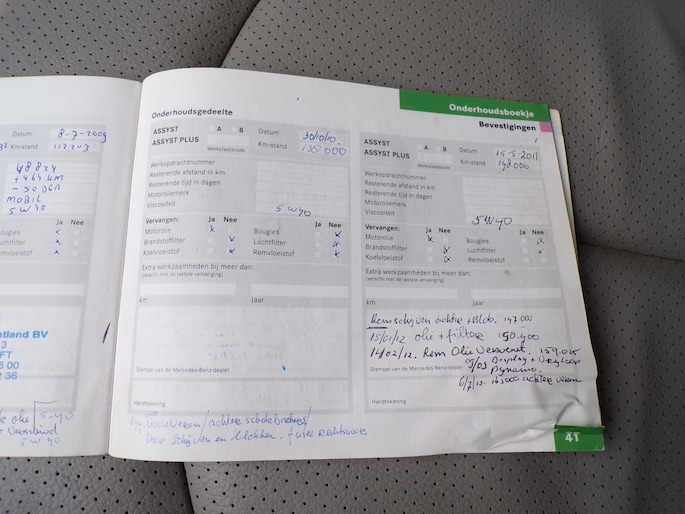 Datum 8-7-2009
Km-stand 112203
48824
+464 KM
- 50 DGN
MOBIL
5W40
Ja Nee
Bougies x
Luchtfilter x
Remvloeistof x
stland BV
3
FT
3 00
2 36
olie 5-40
5W40
Onderhoudsgedeelte
ASSYST A B Datum 30/10/10
ASSYST PLUS Werkplaatscode Km-stand 135.000
Werkopdrachtnummer
Resterende afstand in km
Resterende tijd in dagen
Motoroliemerk
Viscositeit 5W40
Vervangen: Ja Nee Ja Nee
Motorolie x Bougies x
Brandstoffilter x Luchtfilter x
Koelvloeistof x Remvloeistof x
Extra werkzaamheden bij meer dan:
(verschil met de laatste vervanging)
km jaar
Stempel van de Mercedes-Benz-dealer
Handtekening
achter
schijven en blokken
Onderhoudsboekje
Bevestigingen
ASSYST A B Datum 15-5-2011
ASSYST PLUS Werkplaatscode Km-stand 148.000
Werkopdrachtnummer
Resterende afstand in km
Resterende tijd in dagen
Motoroliemerk
Viscositeit 5W40
Vervangen: Ja Nee Ja Nee
Motorolie x Bougies x
Brandstoffilter x Luchtfilter x
Koelvloeistof x Remvloeistof x
Extra werkzaamheden bij meer dan:
(verschil met de laatste vervanging)
km jaar
Remschijven achter +Blok. 147.000
15/01/12 olie + filter
14/02/12. Rem Olie Ververst.
Stempel van de Mercedes-Benz-dealer 09/03 Display +
Dynamo.
6/7/12. 163000 achter veren
Handtekening
41